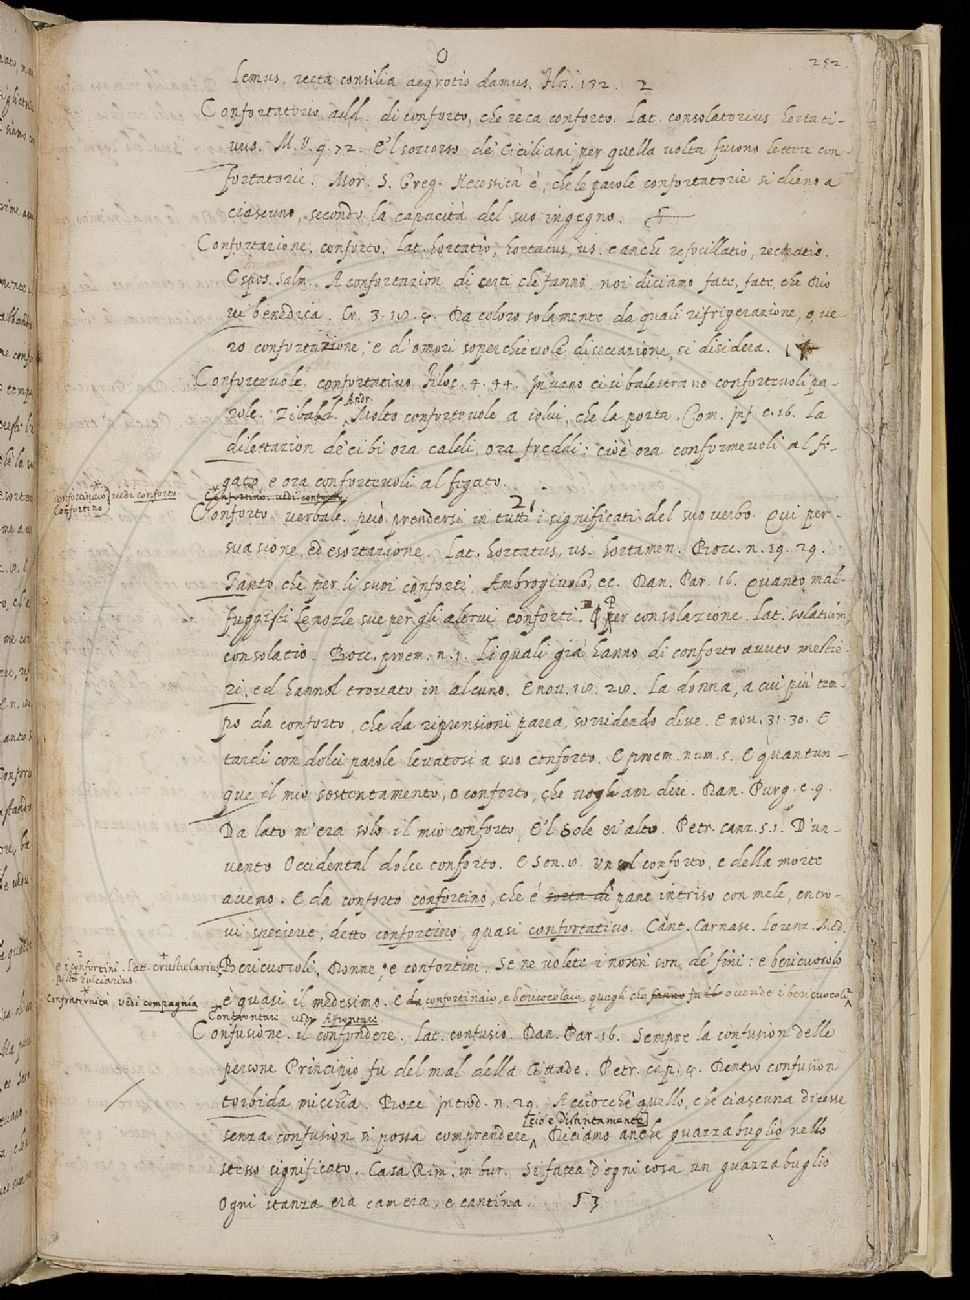 O
252.
lemus, recta consilia aegrotis damus. Flos. 132. 2
Confortatorio add. di conforto, che reca conforto. Lat. consolatorius hortati-
vus. M. V. 9. 72. E'l soccorso de' Ciciliani per quella volta furono lettere con-
fortatorie. Mor. S. Greg. Necessità è, che le parole confortatorie si dieno a
ciascuno, secondo la capacità del suo ingegno.
Confortazione. conforto. Lat. hortatio, hortatus, us. e anche refocillatio, recreatio.
Espos. Salm. A confortazion di certi che fanno, noi diciamo fate, fate, che Dio
vi benedica. Cr. 3. Da coloro solamente da quali rifrigerazione, o ve-
ro confortazione, e d'omori soperchievole diseccazione, si disidera. 1
Confortevole, confortativo. Filoc. 4. 44. In vano ci si balestrano confortevoli pa-
role. Tibald. Andr. Molto confortevole a colui, che la porta. Com. Inf. c. 16. La
dilettazion de' cibi ora caldi, ora freddi: cioè ora conformevoli al fe-
gato, e ora confortevoli al fegato.
Confortinaio
Confortino
vedi conforto
Confortino. vedi conforto
21
Conforto verbale. può prendersi in tutti i significati del suo verbo. Qui per-
suasione, ed esortazione. Lat. hortatus, us. hortamen. Bocc. n. 19. 29.
Tanto che per li suoi conforti, Ambrogiuolo, ec. Dan. Par. 16. Quanto mal
fuggisti le nozze sue per gli altrui conforti. Per consolazione. Lat. solatium
consolatio. Bocc. proem. n. 1. Li quali già hanno di conforto avuto mestie-
ri, ed hannol trovato in alcuno. E nov. 18. 28. La donna, a cui più tem-
po da conforto, che da riprensioni parea, sorridendo disse. E nov. 31. 30. E
tardi con dolci parole levatosi a suo conforto. E proem. num. 5. E quantun-
que il mio sostentamento, e conforto, che vogliam dire. Dan. Purg. c. 9.
Da lato m'era solo il mio conforto, E'l Sole er'alto. Petr. canz. 5. 1. D'un
vento Occidental dolce conforto. E Son. 8. Un sol conforto, e della morte
avemo. E da conforto confortino, che è sorta di pane intriso con mele, entro-
vi spezierie, detto confortino, quasi confortativo. Cant. Carnasc. Lorenz. Med.
e 2 confortini. Lat. crustularius,
pistor dulciarius.
Bericuocoli, Donne, e confortini, Se ne volete i nostri son de' fini: e bericuocolo
Confraternita vedi compagnia
è quasi il medesimo. e da confortinaio, e bericuocolaio, quegli che fanno fa e vende i bericuocoli
Confrontare vedi Affrontare
Confusione. il confondere. Lat. confusio. Dan. Par. 16. Sempre la confusion delle
persone Principio fu del mal della Cittade. Petr. cap. 4. Dentro confusion
torbida mischia. Bocc. Introd. n. 29. Acciocchè quello, che ciascuna dicesse
cioè distintamente
senza confusion si possa comprendere. Diciamo anche guazzabuglio nello
stesso significato. Casa Rim. in bur. Si facea d'ogni cosa un guazzabuglio
Ogni stanza era camera, e cantina. 53